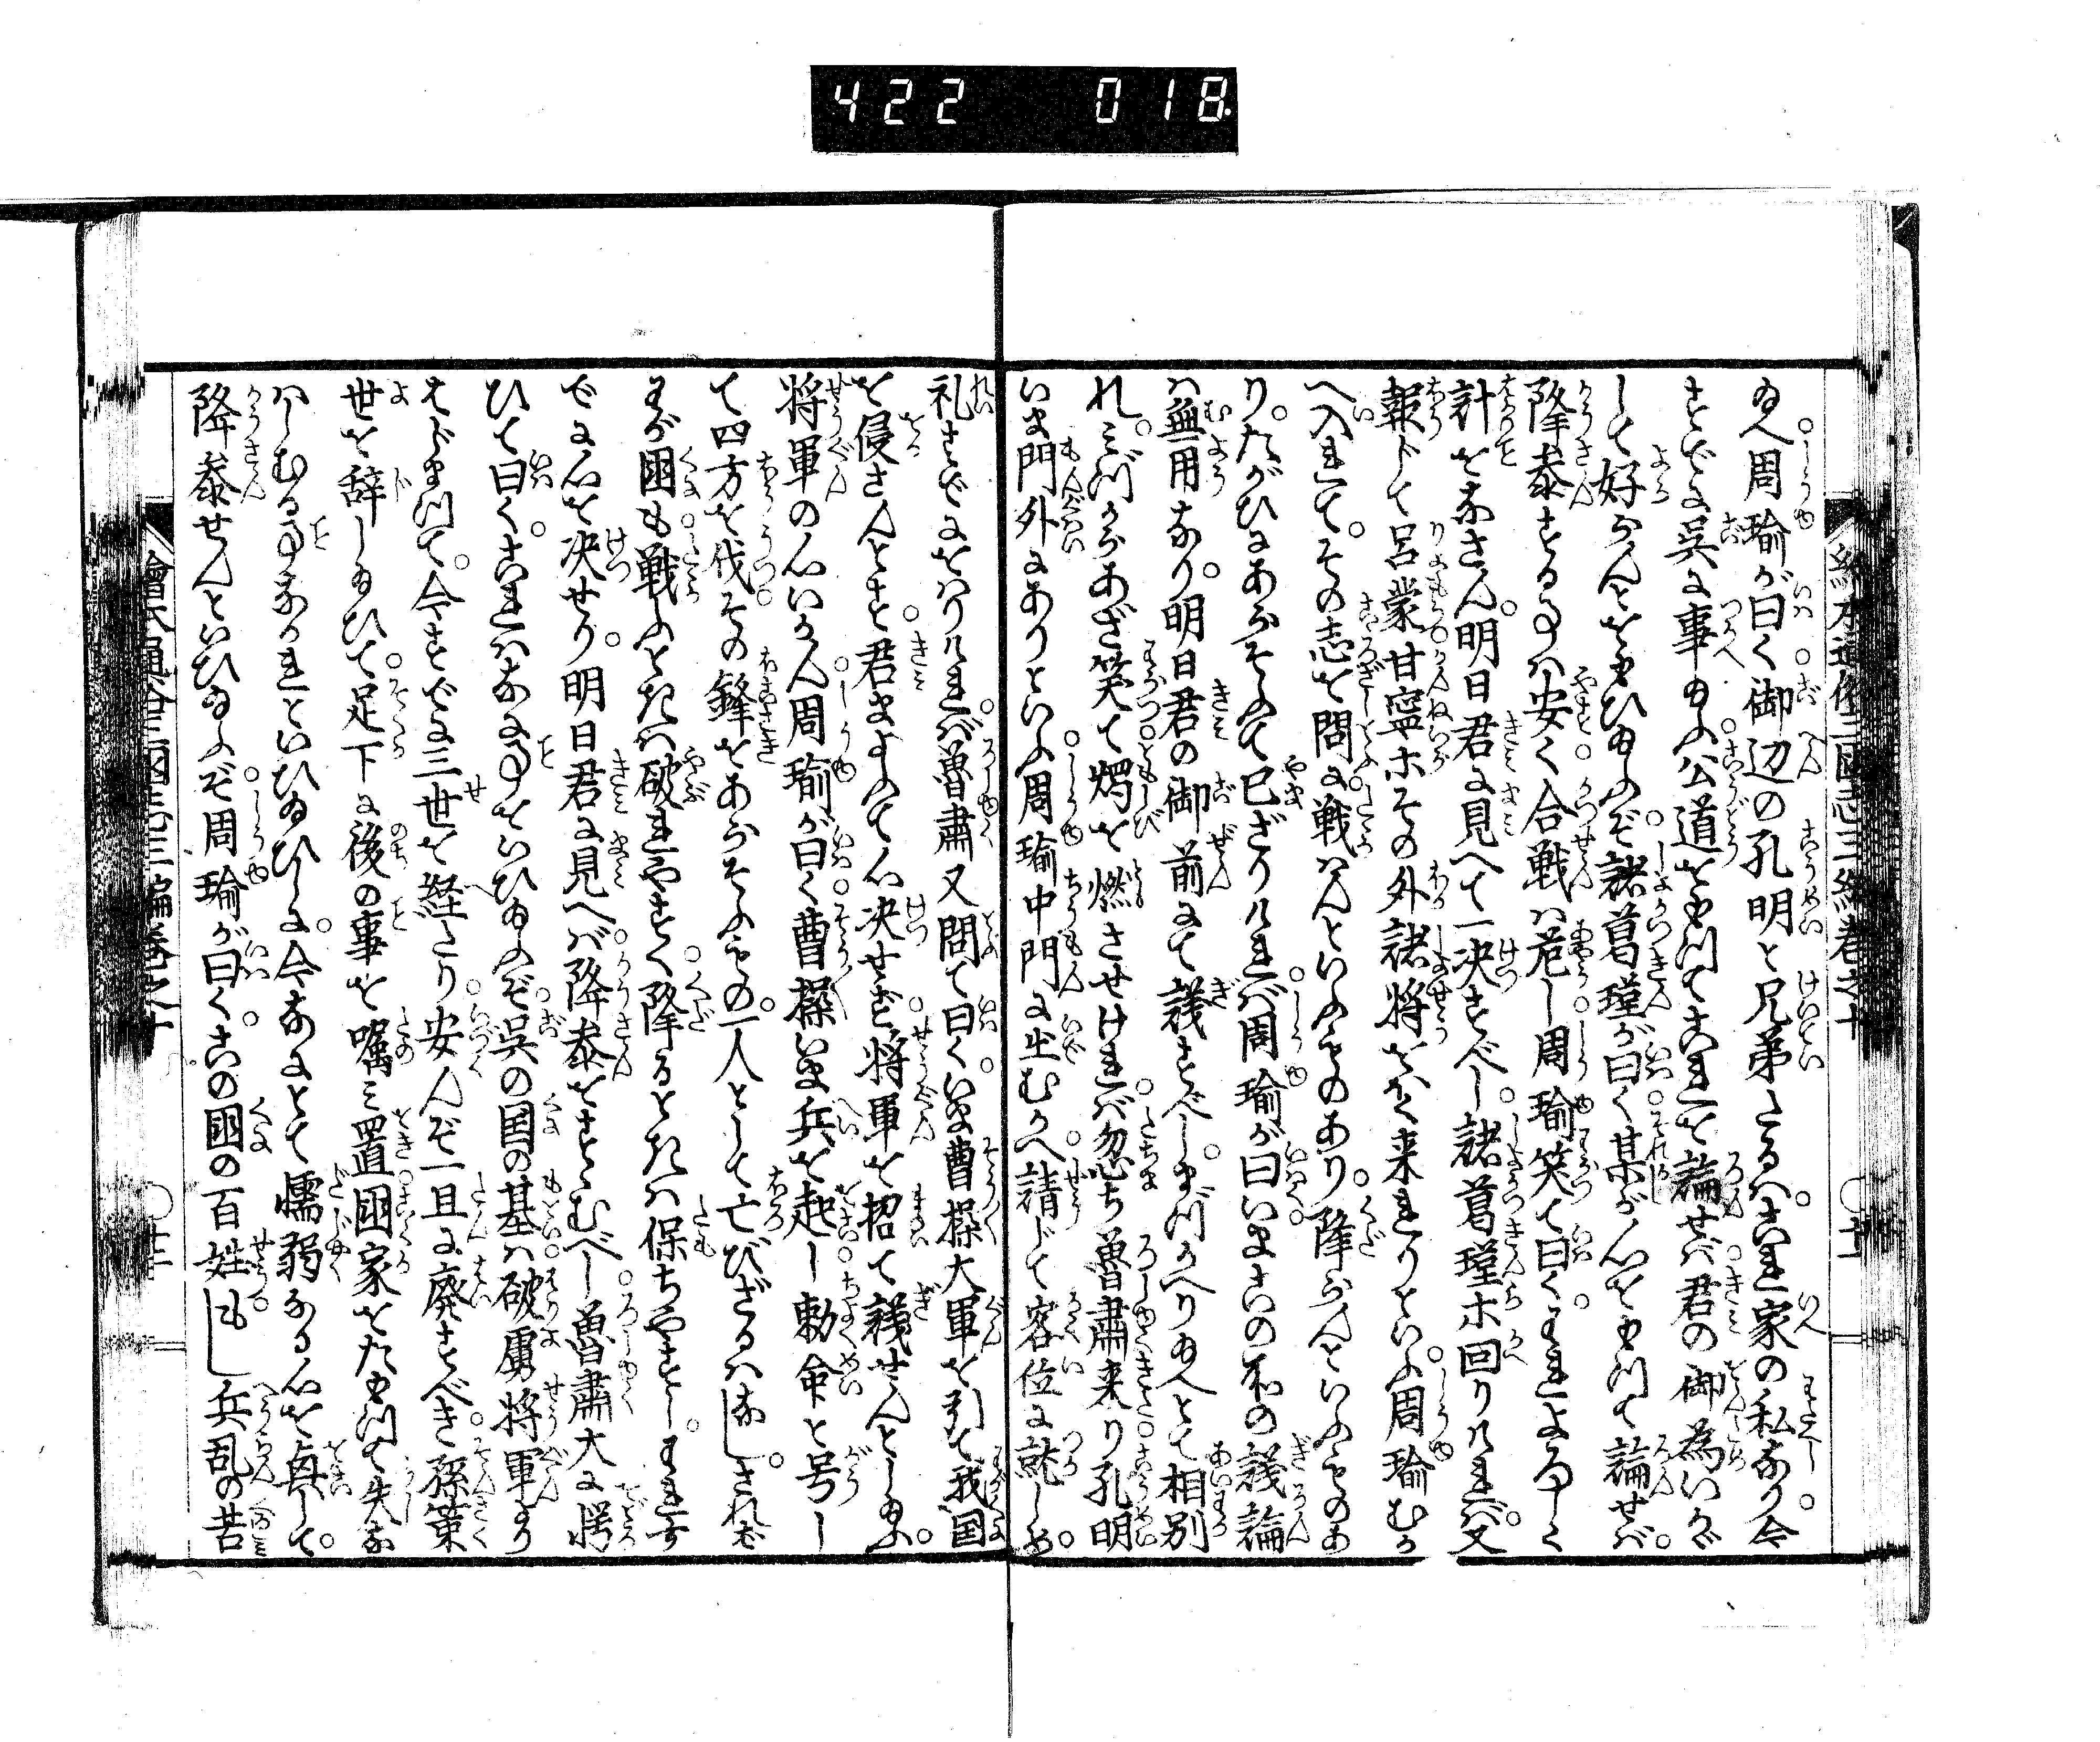 422 018
絵本通俗三国志三編巻之十
給へ周瑜が曰く御辺の孔明と兄弟たるハこれ家の私なり今
すでに呉に事ゆふ公道をもつてこれを論せバ君の御為いかゞ
して好らんと思ひ給ふぞ諸葛瑾が曰く某が心をもつて論せバ
降参することハ安く合戦ハ危し周瑜笑て曰くわれよろしく
計をなさん明日君に見へて一決すべし諸葛瑾ホ回りけれバ又
報じて呂蒙甘寧ホその外諸将ぞく来れりといふ周瑜むか
へ入れて。その志を問に戦ハんといふものあり降らんといふものあ
り。たがひにあらそふて已ざりけれバ周瑜が曰いまこの不の議論
ハ無用なり。明日君の御前にて議すべしまづかへり給へとて相別
れ。ミづからあざ笑て燭を燃させけれバ忽ち魯粛来り孔明
いま門外にありといふ周瑜中門に出むかへ請じて客位に就しめ。
礼すでにをハりけれバ魯粛又問て曰くいま曹操大軍を引て我国
を侵さんとす君まよふて心決せず将軍を招て議せんとし給ふ。
将軍の心いかん周瑜が曰く曹操いま兵を起し勅命と号し
て四方を伐その鋒をあらそふもの一人として亡びざるハなし。されば
わが国も戦ふときハ破れやすく降るときハ保ちやすし。われす
でに心を決せり。明日君に見へバ降参をすゝむべし魯粛大に愕
ひて曰く。これハなに事をいひ給ふぞ呉の国の基ハ破虜将軍より
はじまつて。今すでに三世を経たり安んぞ一旦に廃すべき孫策
世を辞し給ひて足下に後の事を嘱ミ置国家をたもつて失な
ハしむる事なかれといひ給ひしに。今なにとて懦弱なる心を真して。
降参せんといひ給ふぞ周瑜が曰く。この国の百姓もし兵乱の苦
絵本通俗三国志三編巻之十